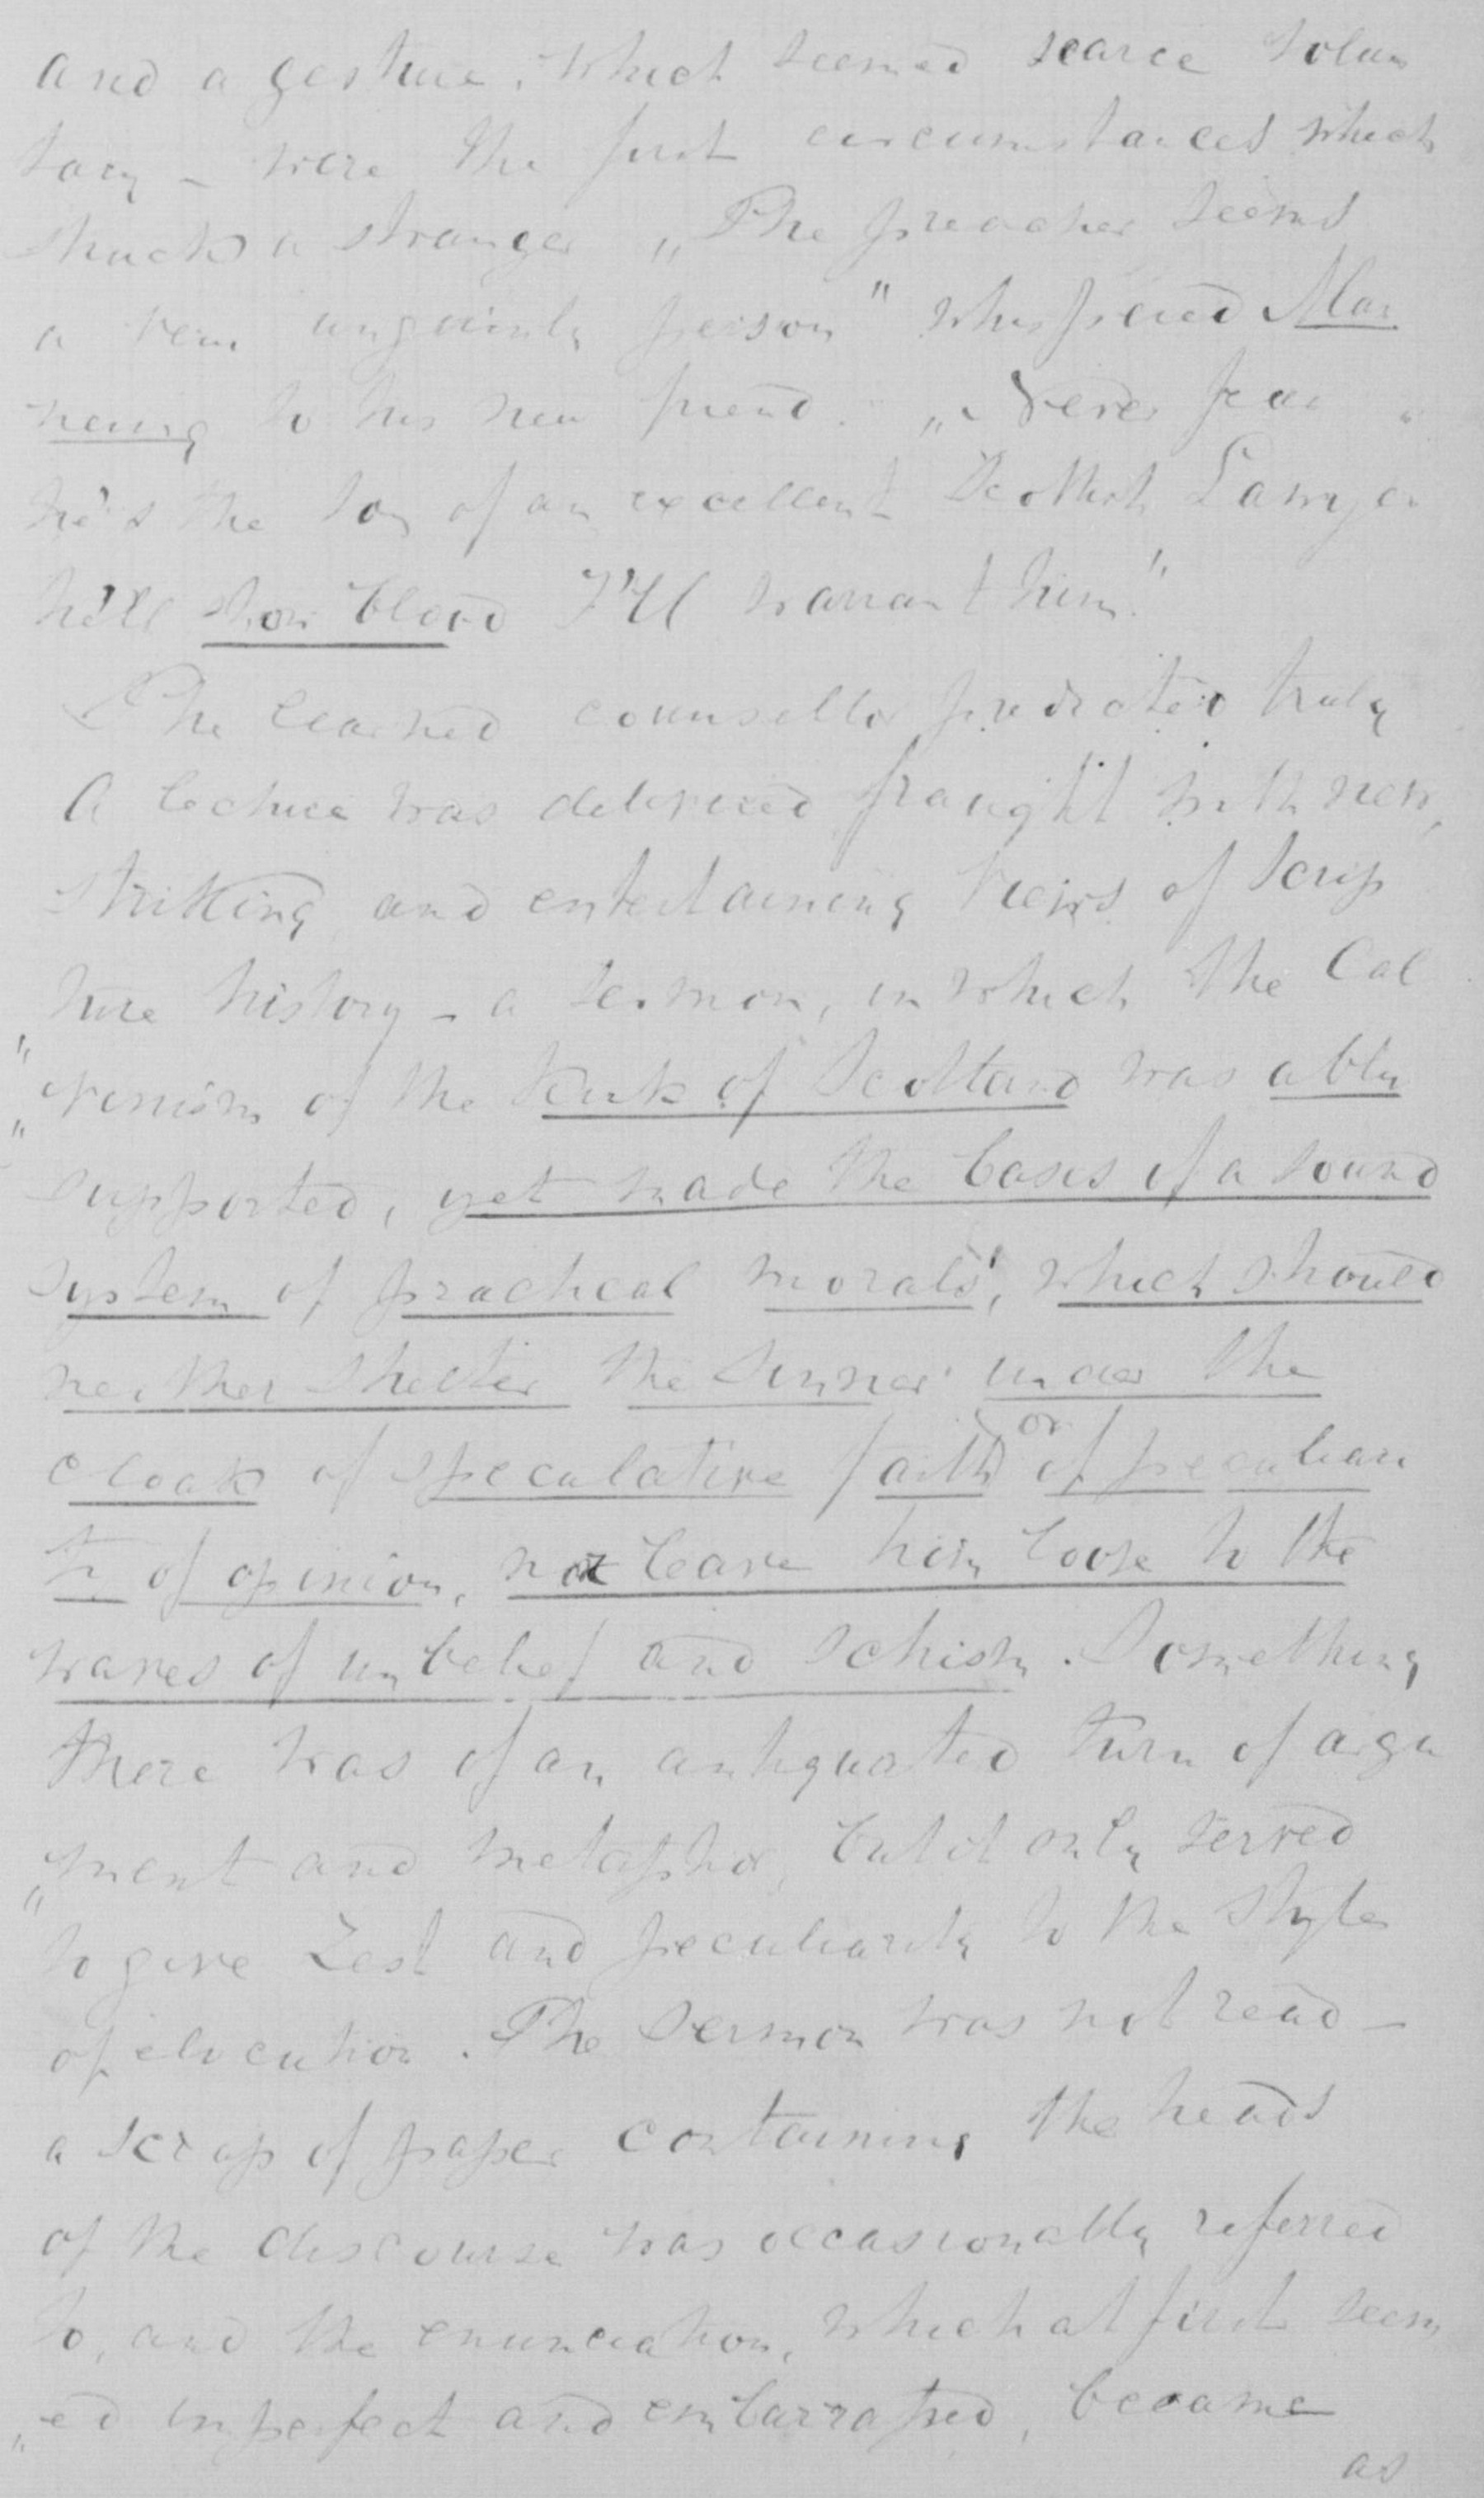 and a gesture, which seemed scarce volun
tary – were the first circumstances which
struck a stranger „The preacher seems
a very ungainly person" whispered Man
nering to his new friend. „Never fear „
he's the son of an excellent Scottish Lawyer
he'll show blood I'll warrant him."
The learned counsellor predicted truly
A lecture was delivered, fraught with new,
striking and entertaining views of Scrip
ture history – a sermon, in which the Cal
„vinism of the Kirk of Scotland was ably
supported, yet made the basis of a sound
system of practical morals, which should
neither shelter the sinner under the
cloak of speculative faith or of peculiari
ty of opinion, not leave him loose to the
waves of unbelief and schism. Something
there was of an antiquated turn of argu
„ment and metaphor, but it only served
to give zest and peculiarity to the style
of elocution. The sermon was not read –
a scrap of paper containing the heads
of the discourse was occasionally referred
to, and the enunciation, which at first seem
„ed imperfect and embarrassed, became
as